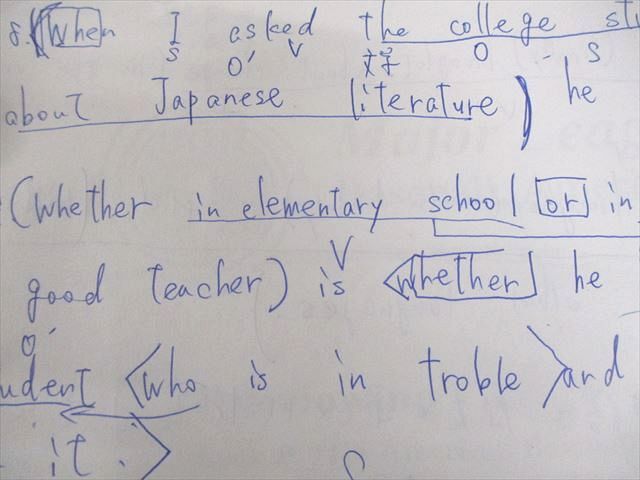 8. (When I asked the college
S O' V 好 O S
about Japanese literature) he
(whether in elementary school or in
V
good teacher) is <whether he
O'
<who is in troble> and
it.>